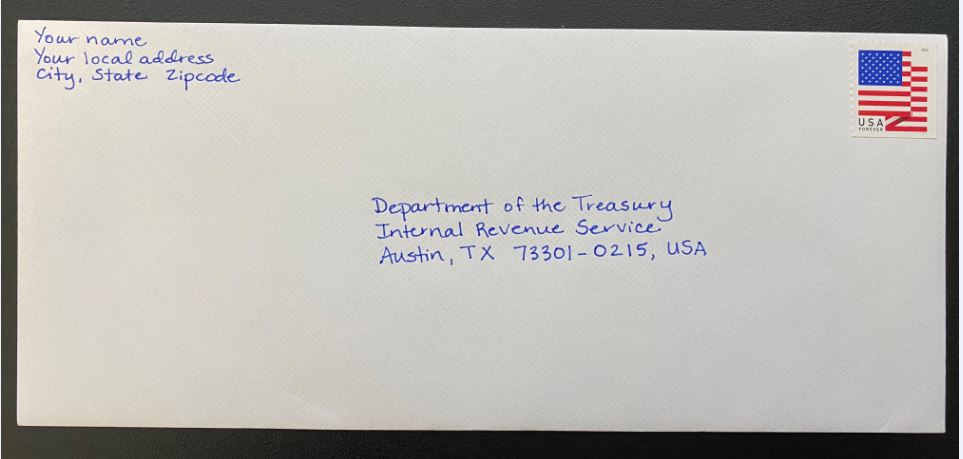 Your name
Your local address
City, State Zipcode
USA
FOREVER
Department of the Treasury
Internal Revenue Service
Austin, TX 73301-0215, USA